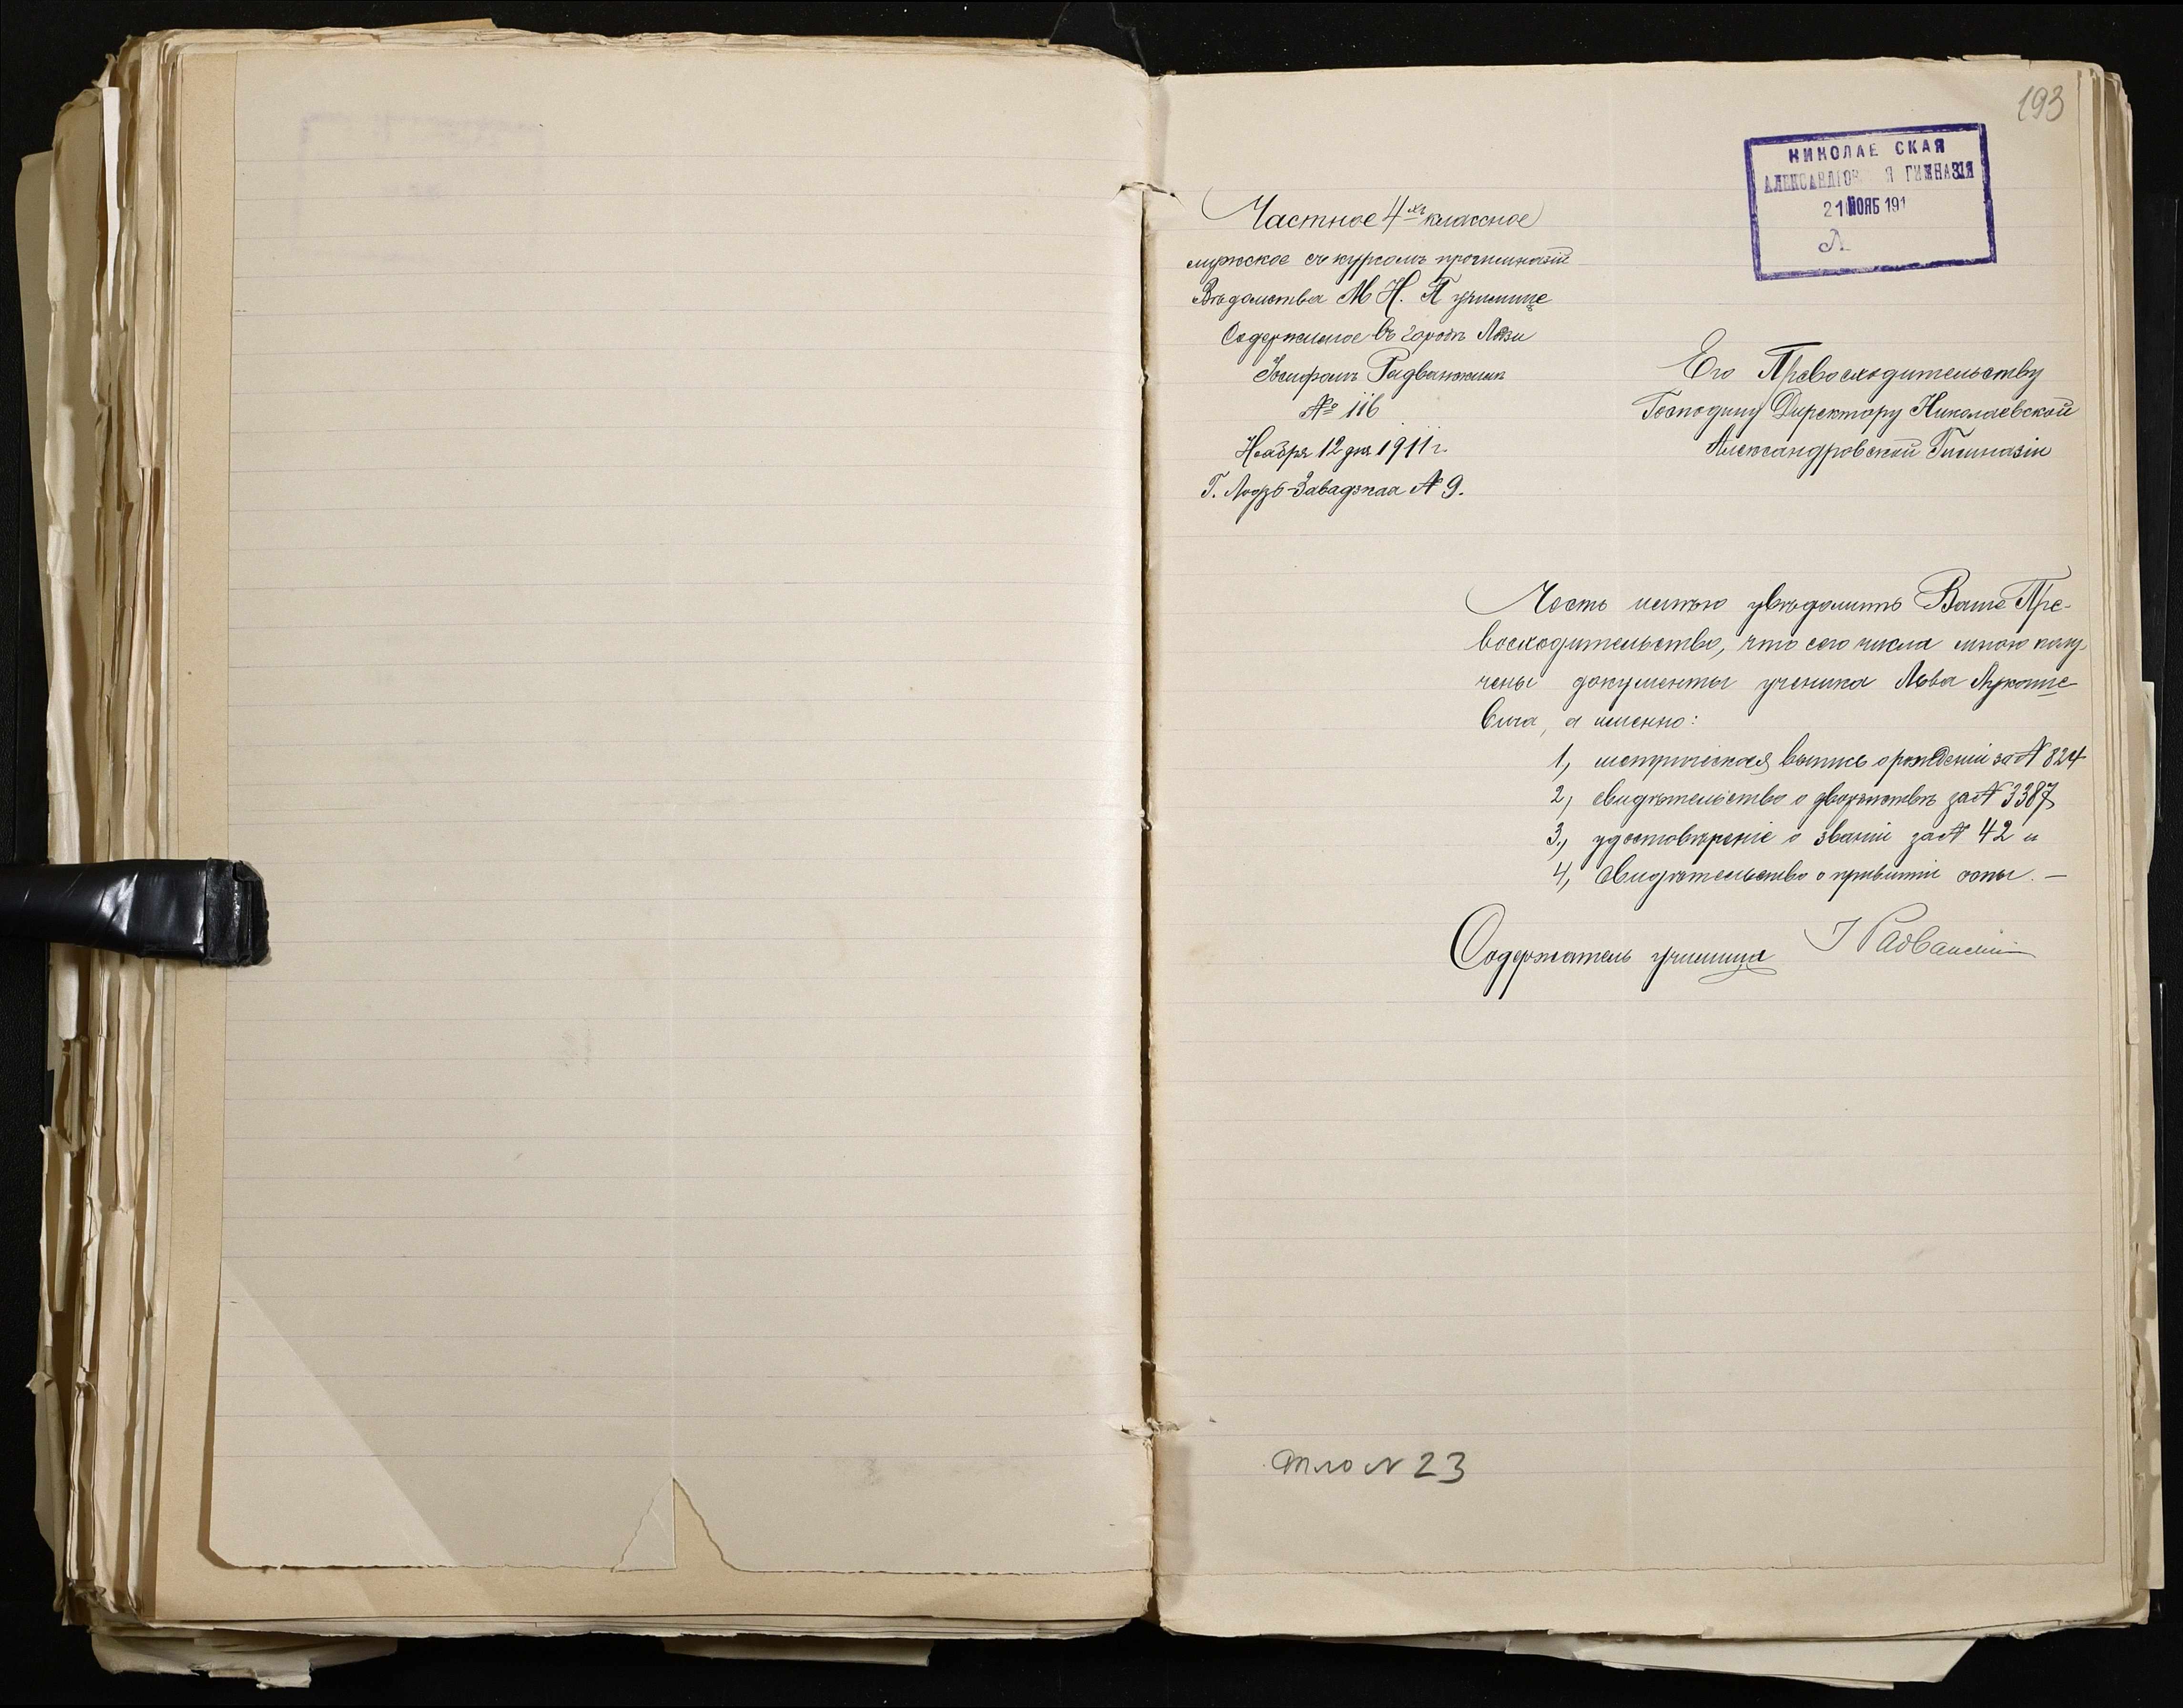 193
НИКОЛАЕ СКАЯ
АЛЕКСАНДРОВ Я ГИМНАЗІЯ
21 НОЯБ 191
Частное 4хъ классное
мужское съ курсомъ прогимназіи
Вѣдомства М Н. П училище
Содержимое въ городѣ Лодзи
Іосифомъ Радванскимъ
№ 116
Ноября 12 дня 1911 г.
Г. Лодзь-Завадзкая № 9.
Его Превосходительству
Господину Директору Николаевской
Александровской Гимназіи
Честь имѣю увѣдомить Ваше Пре-
восходительство, что сего числа мною полу-
чены документы ученика Льва Лукаше
вича, а именно:
1, метрическая выпись о рожденіи за № 824
2, свидѣтельство о дворянствѣ за № 3387
3., удостовѣреніе о званіи за № 42 и
4, свидѣтельство о привитіи оспы. —
Содержатель училища І Радванскій
дѣло № 23